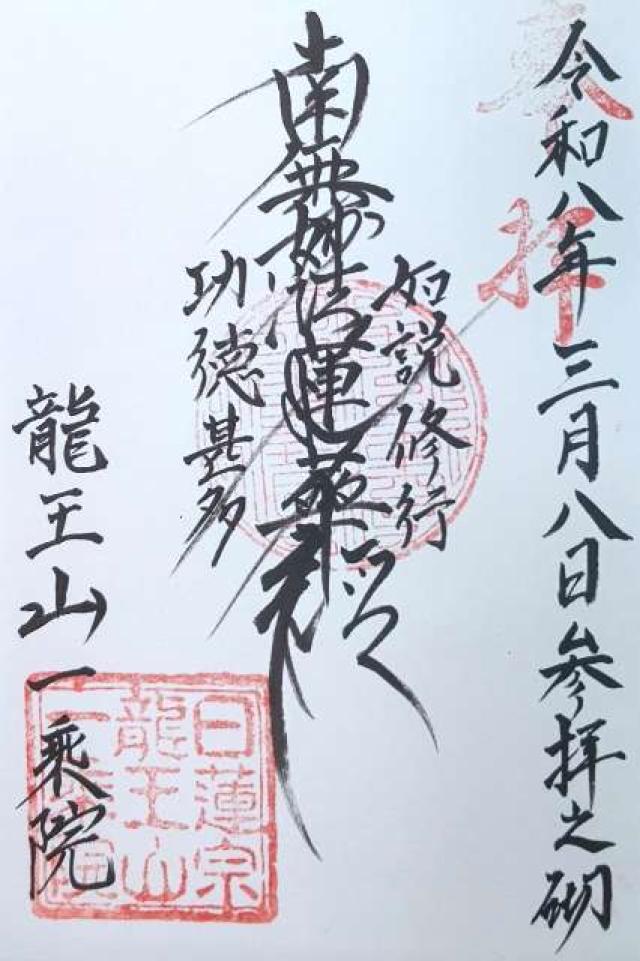 奉拝
令和八年三月八日参拝之砌
如説修行
南無妙法蓮華経
功徳甚多
龍王山一乗院
日蓮宗
龍王山
一乗院